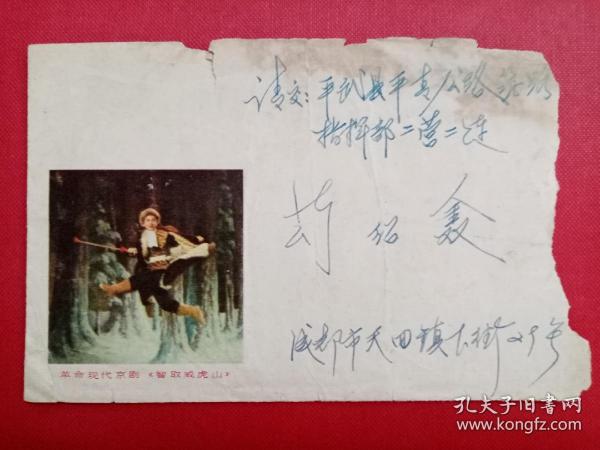 请交:平武县平青公路
指挥部二营二连
绍
成都市天回镇上街29号
革命现代京剧《智取威虎山》
孔夫子旧书网
www.kongfz.com